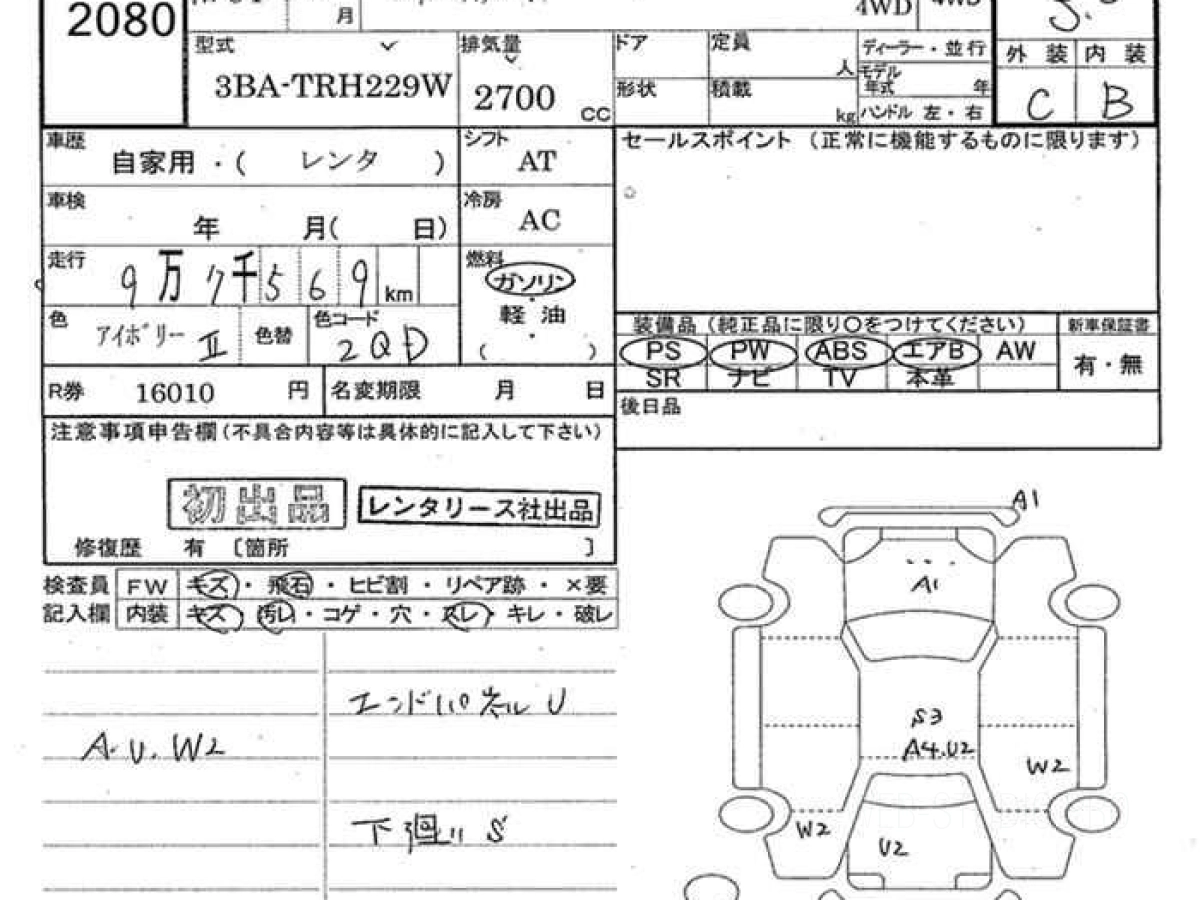 2080
月
4WD
型式
3BA-TRH229W
排気量
2700 cc
ドア
定員 人
ディーラー・並行
形状
積載 kg
モデル年式 年
ハンドル 左・右
外装 内装
C B
車歴
自家用・( レンタ )
シフト
AT
セールスポイント (正常に機能するものに限ります)
車検
年 月( 日)
冷房
AC
走行
9万7千569 km
燃料
ガソリン
軽油
( ・ )
色
アイボリー II
色替
色コード
2QD
装備品 (純正品に限り○をつけてください)
新車保証書
PS PW ABS エアB AW
SR ナビ TV 本革
有・無
R券 16010 円
名変期限 月 日
後日品
注意事項申告欄(不具合内容等は具体的に記入して下さい)
初出品
レンタリース社出品
修復歴 有 〔箇所 〕
検査員 FW キズ・飛石・ヒビ割・リペア跡・×要
記入欄 内装 キズ・汚レ・コゲ・穴・スレ・キレ・破レ
エンドパネルU
A.U.W2
下廻りS
A1
A1
S3
A4.U2
W2
W2
U2